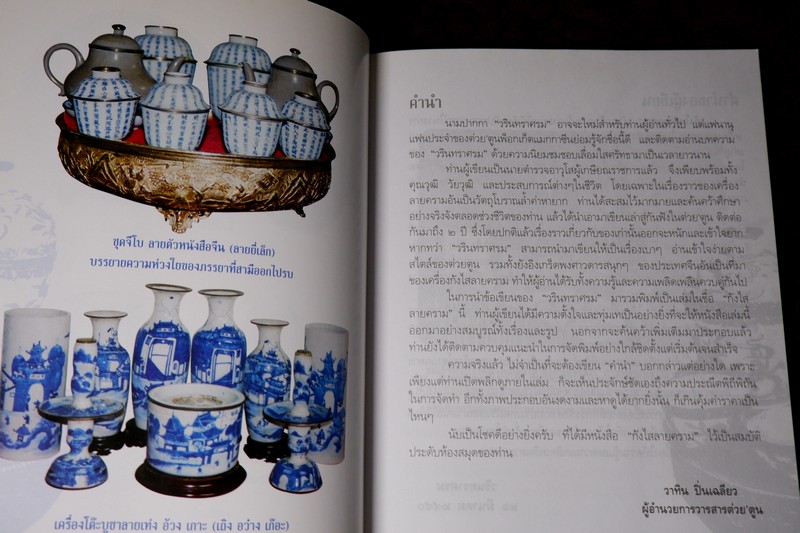 ชุดจีโบ ลายตัวหนังสือจีน (ลายยี่เล็ก)
บรรยายความห่วงใยของภรรยาที่สามีออกไปรบ
เครื่องโต๊ะบูชาลายเท่ง อ้วง เกาะ (เถิง อว๋าง เก๋อะ)
คำนำ
นามปากกา "วรินทราศรม" อาจจะใหม่สำหรับท่านผู้อ่านทั่วไป แต่แฟนานุ
แฟนประจำของต่วย'ตูนพ็อกเก็ตแมกกาซีนย่อมรู้จักชื่อนี้ดี และติดตามอ่านบทความ
ของ "วรินทราศรม" ด้วยความนิยมชมชอบเลื่อมใสศรัทธามาเป็นเวลายาวนาน
ท่านผู้เขียนเป็นนายตำรวจอาวุโสผู้เกษียณราชการแล้ว จึงเพียบพร้อมทั้ง
คุณวุฒิ วัยวุฒิ และประสบการณ์ต่างๆในชีวิต โดยเฉพาะในเรื่องราวของเครื่อง
ลายครามอันเป็นวัตถุโบราณล้ำค่าหายาก ท่านได้สะสมไว้มากมายและค้นคว้าศึกษา
อย่างจริงจังตลอดช่วงชีวิตของท่าน แล้วได้นำเอามาเขียนเล่าสู่กันฟังในต่วย'ตูน ติดต่อ
กันมาถึง ๒ ปี ซึ่งโดยปกติแล้วเรื่องราวเกี่ยวกับของเก่านั้นออกจะหนักและเข้าใจยาก
หากทว่า "วรินทราศรม" สามารถนำมาเขียนให้เป็นเรื่องเบาๆ อ่านเข้าใจง่ายตาม
สไตล์ของต่วย'ตูน รวมทั้งยังอิงเกร็ดพงศาวดารสนุกๆ ของประเทศจีนอันเป็นที่มา
ของเครื่องกังไสลายคราม ทำให้ผู้อ่านได้รับทั้งความรู้และความเพลิดเพลินควบคู่กันไป
ในการนำข้อเขียนของ "วรินทราศรม" มารวมพิมพ์เป็นเล่มในชื่อ "กังไส
ลายคราม" นี้ ท่านผู้เขียนได้มีความตั้งใจและทุ่มเทเป็นอย่างยิ่งที่จะให้หนังสือเล่มนี้
ออกมาอย่างสมบูรณ์ทั้งเรื่องและรูป นอกจากจะค้นคว้าเพิ่มเติมมาประกอบแล้ว
ท่านยังได้ติดตามควบคุมแนะนำในการจัดพิมพ์อย่างใกล้ชิดตั้งแต่เริ่มต้นจนสำเร็จ
ความจริงแล้ว ไม่จำเป็นที่จะต้องเขียน "คำนำ" บอกกล่าวแต่อย่างใด เพราะ
เพียงแต่ท่านเปิดพลิกดูภายในเล่ม ก็จะเห็นประจักษ์ชัดเองถึงความประณีตพิถีพิถัน
ในการจัดทำ อีกทั้งภาพประกอบอันงดงามและหาดูได้ยากยิ่งนั้น ก็เกินคุ้มค่าราคาเป็น
ไหนๆ
นับเป็นโชคดีอย่างยิ่งครับ ที่ได้มีหนังสือ "กังไสลายคราม" ไว้เป็นสมบัติ
ประดับห้องสมุดของท่าน
วาทิน ปิ่นเฉลียว
ผู้อำนวยการวารสารต่วย'ตูน